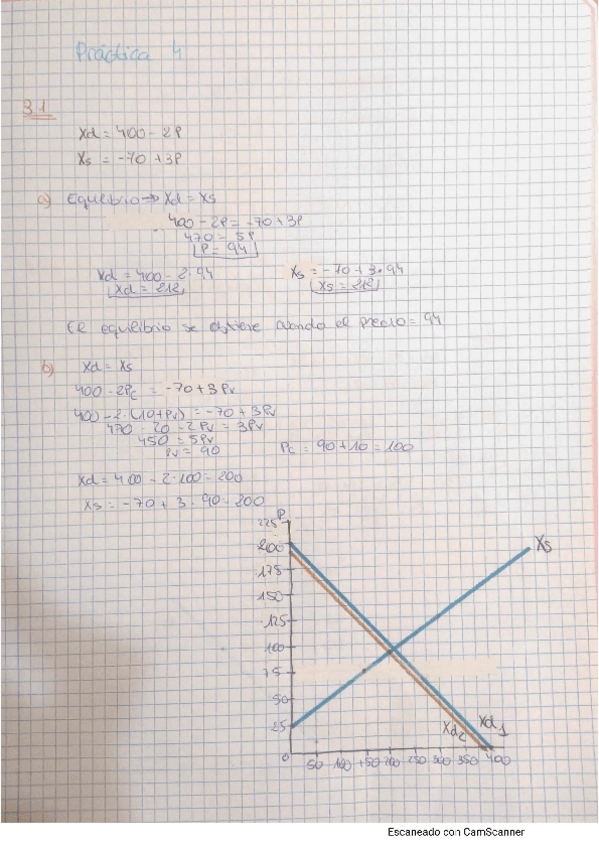 Práctica 4
3.1
Xd = 400 - 2P
Xs = -70 + 3P
a) Equilibrio → Xd = Xs
400 - 2P = -70 + 3P
470 = 5P
P = 94
Xd = 400 - 2·94 Xs = -70 + 3·94
Xd = 212 Xs = 212
El equilibrio se obtiene cuando el precio = 94
b) Xd = Xs
400 - 2Pc = -70 + 3Pv
400 - 2·(10+Pv) = -70 + 3Pv
470 - 20 - 2Pv = 3Pv
450 = 5Pv
Pv = 90 Pc = 90 + 10 = 100
Xd = 400 - 2·100 = 200
Xs = -70 + 3·90 = 200
P
225
200
175
150
125
100
75
50
25
Xs
Xd2 Xd1
0 50 100 150 200 250 300 350 400
Escaneado con CamScanner